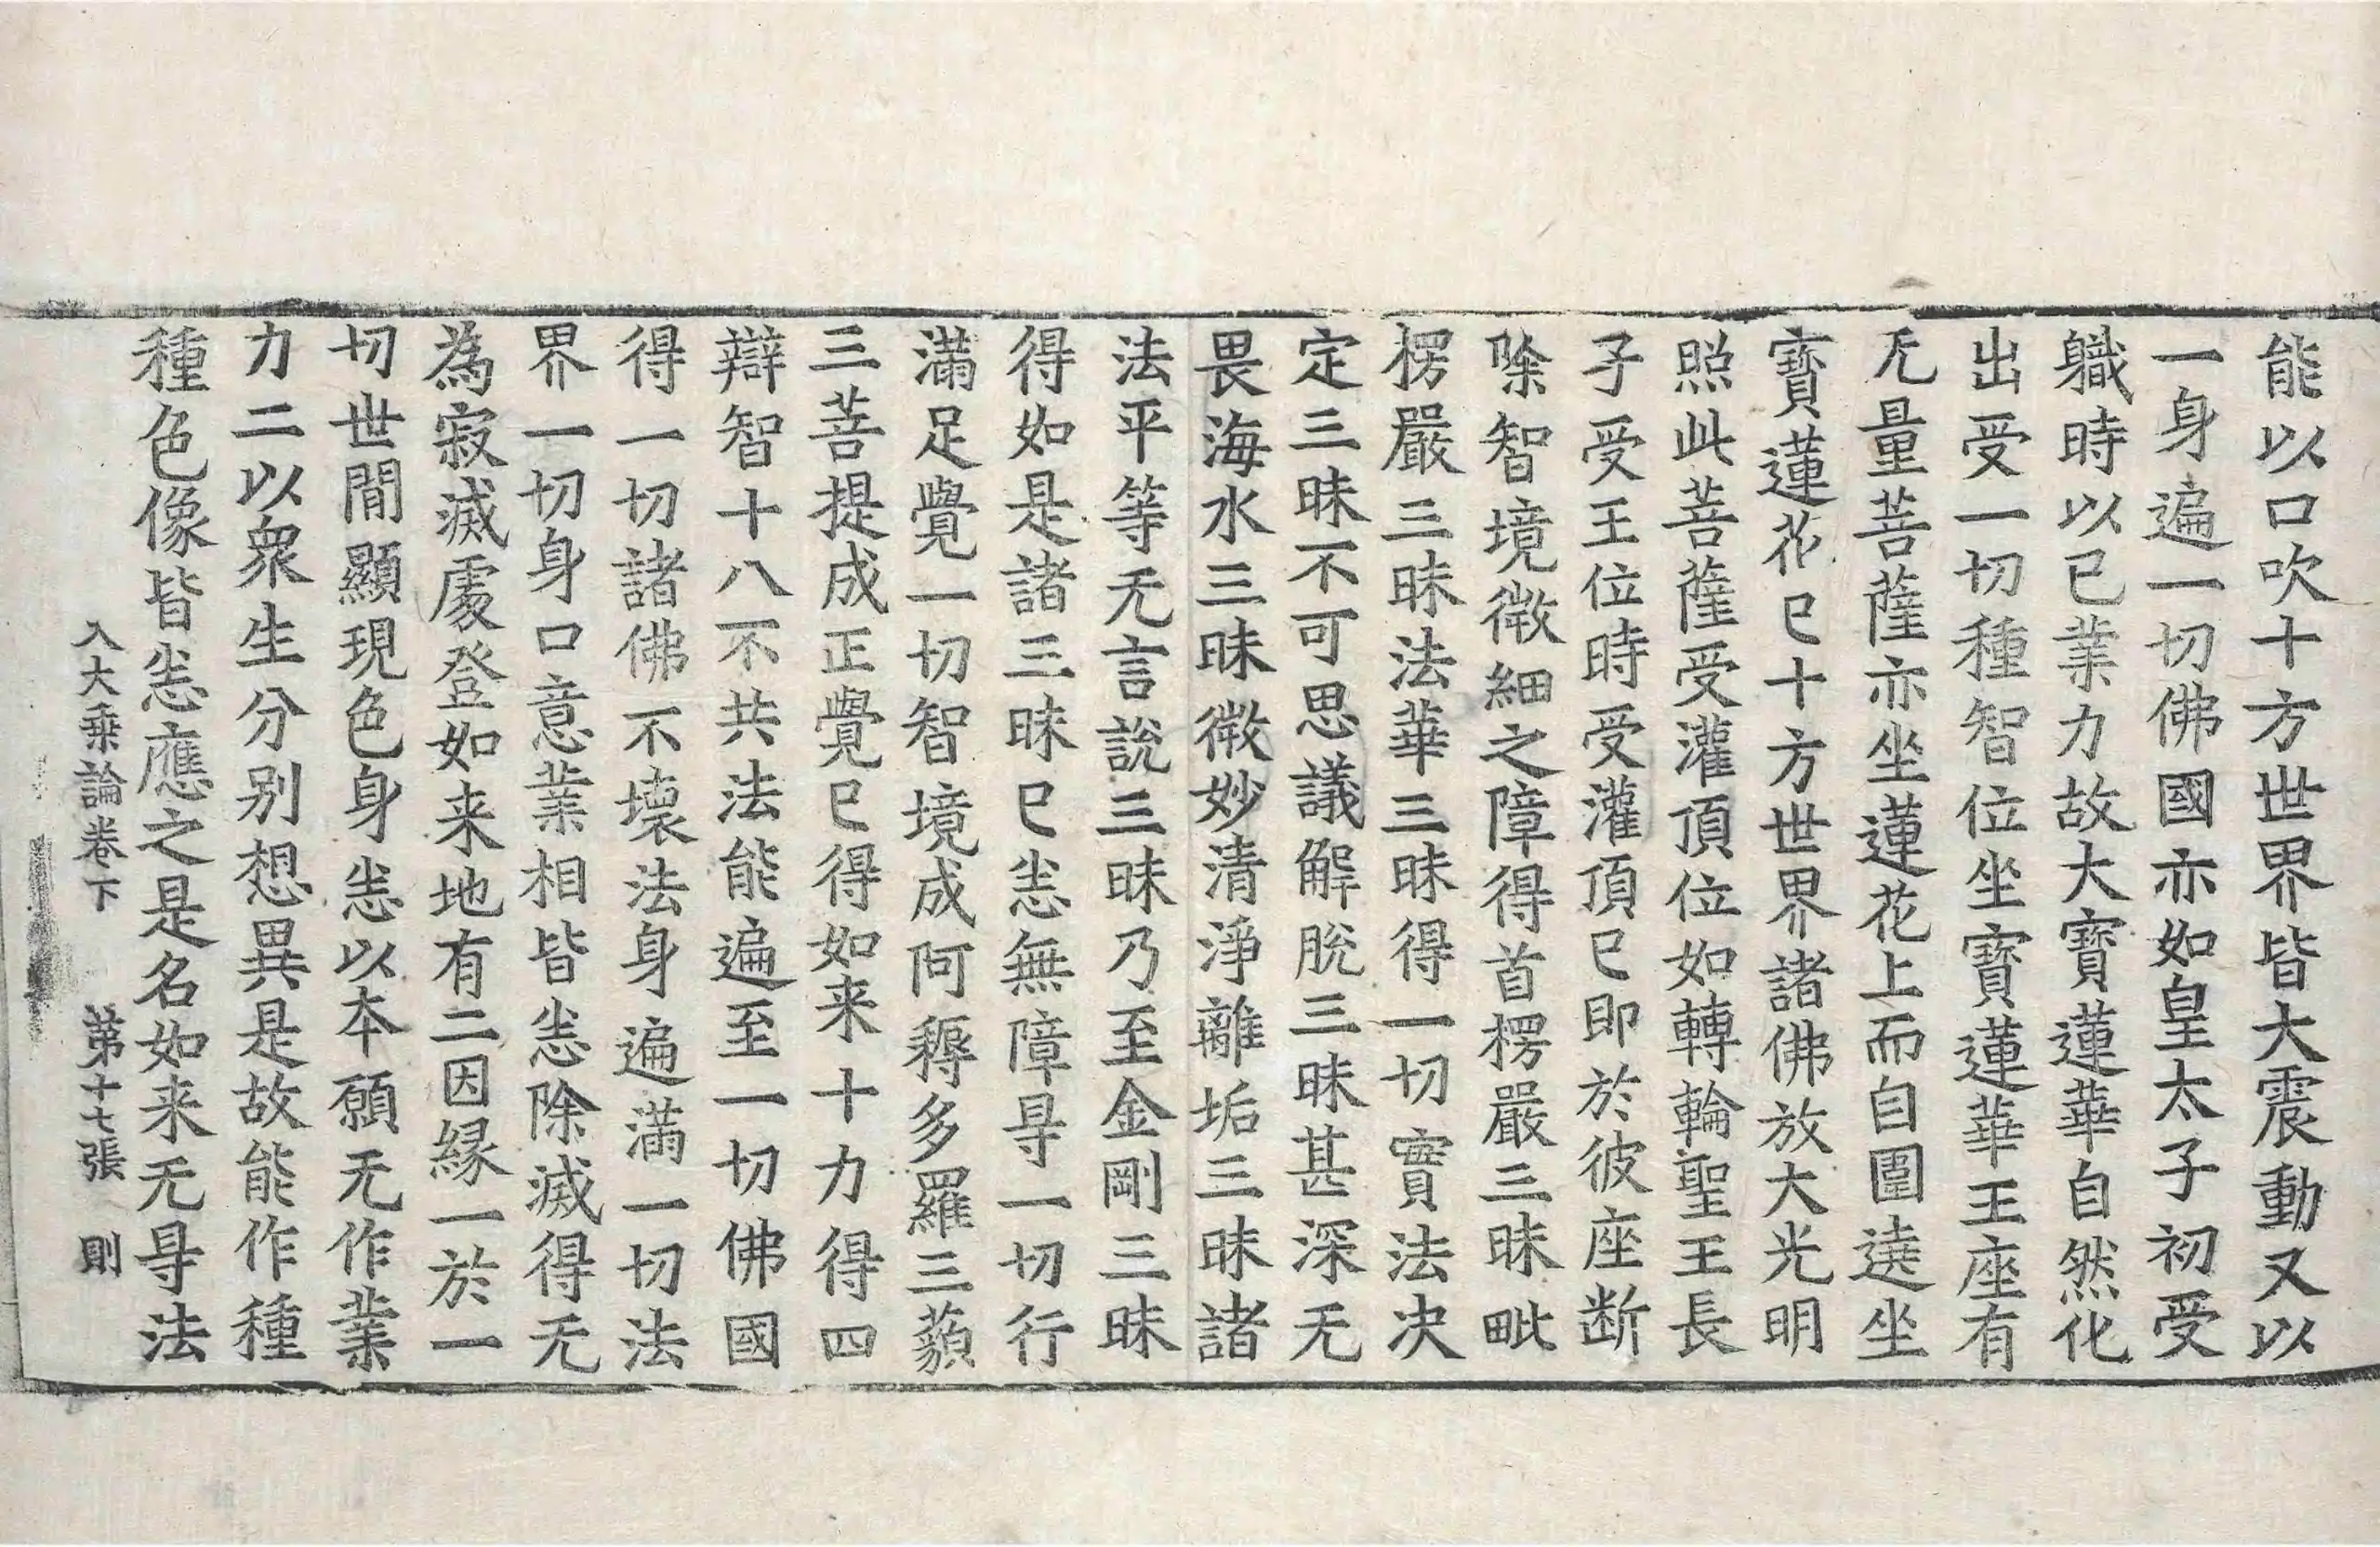 能以口吹十方世界皆大震動又以
一身遍一切佛國亦如皇太子初受
軄時以已業力故大寳蓮華自然化
出受一切種智位坐寳蓮華王座有
无量菩薩亦坐蓮花上而自圍遶坐
寳蓮花已十方世界諸佛放大光明
照此菩薩受灌頂位如轉輪聖王長
子受王位時受灌頂已即於彼座断
除智境微細之障得首楞嚴三昧毗
楞嚴三昧法華三昧得一切實法决
定三昧不可思議解脫三昧甚深无
畏海水三昧微妙清淨離垢三昧諸
法平等无言說三昧乃至金剛三昧
得如是諸三昧已恙無障㝵一切行
滿足覺一切智境成阿耨多羅三藐
三菩提成正覺已得如来十力得四
辯智十八不共法能遍至一切佛國
得一切諸佛不壞法身遍滿一切法
界一切身口意業相皆恙除滅得无
為寂滅處登如来地有二因縁一於一
切世間顯現色身恙以本願无作業
力二以衆生分别想異是故能作種
種色像皆恙應之是名如来无㝵法
入大乗論卷下 第十七張 則